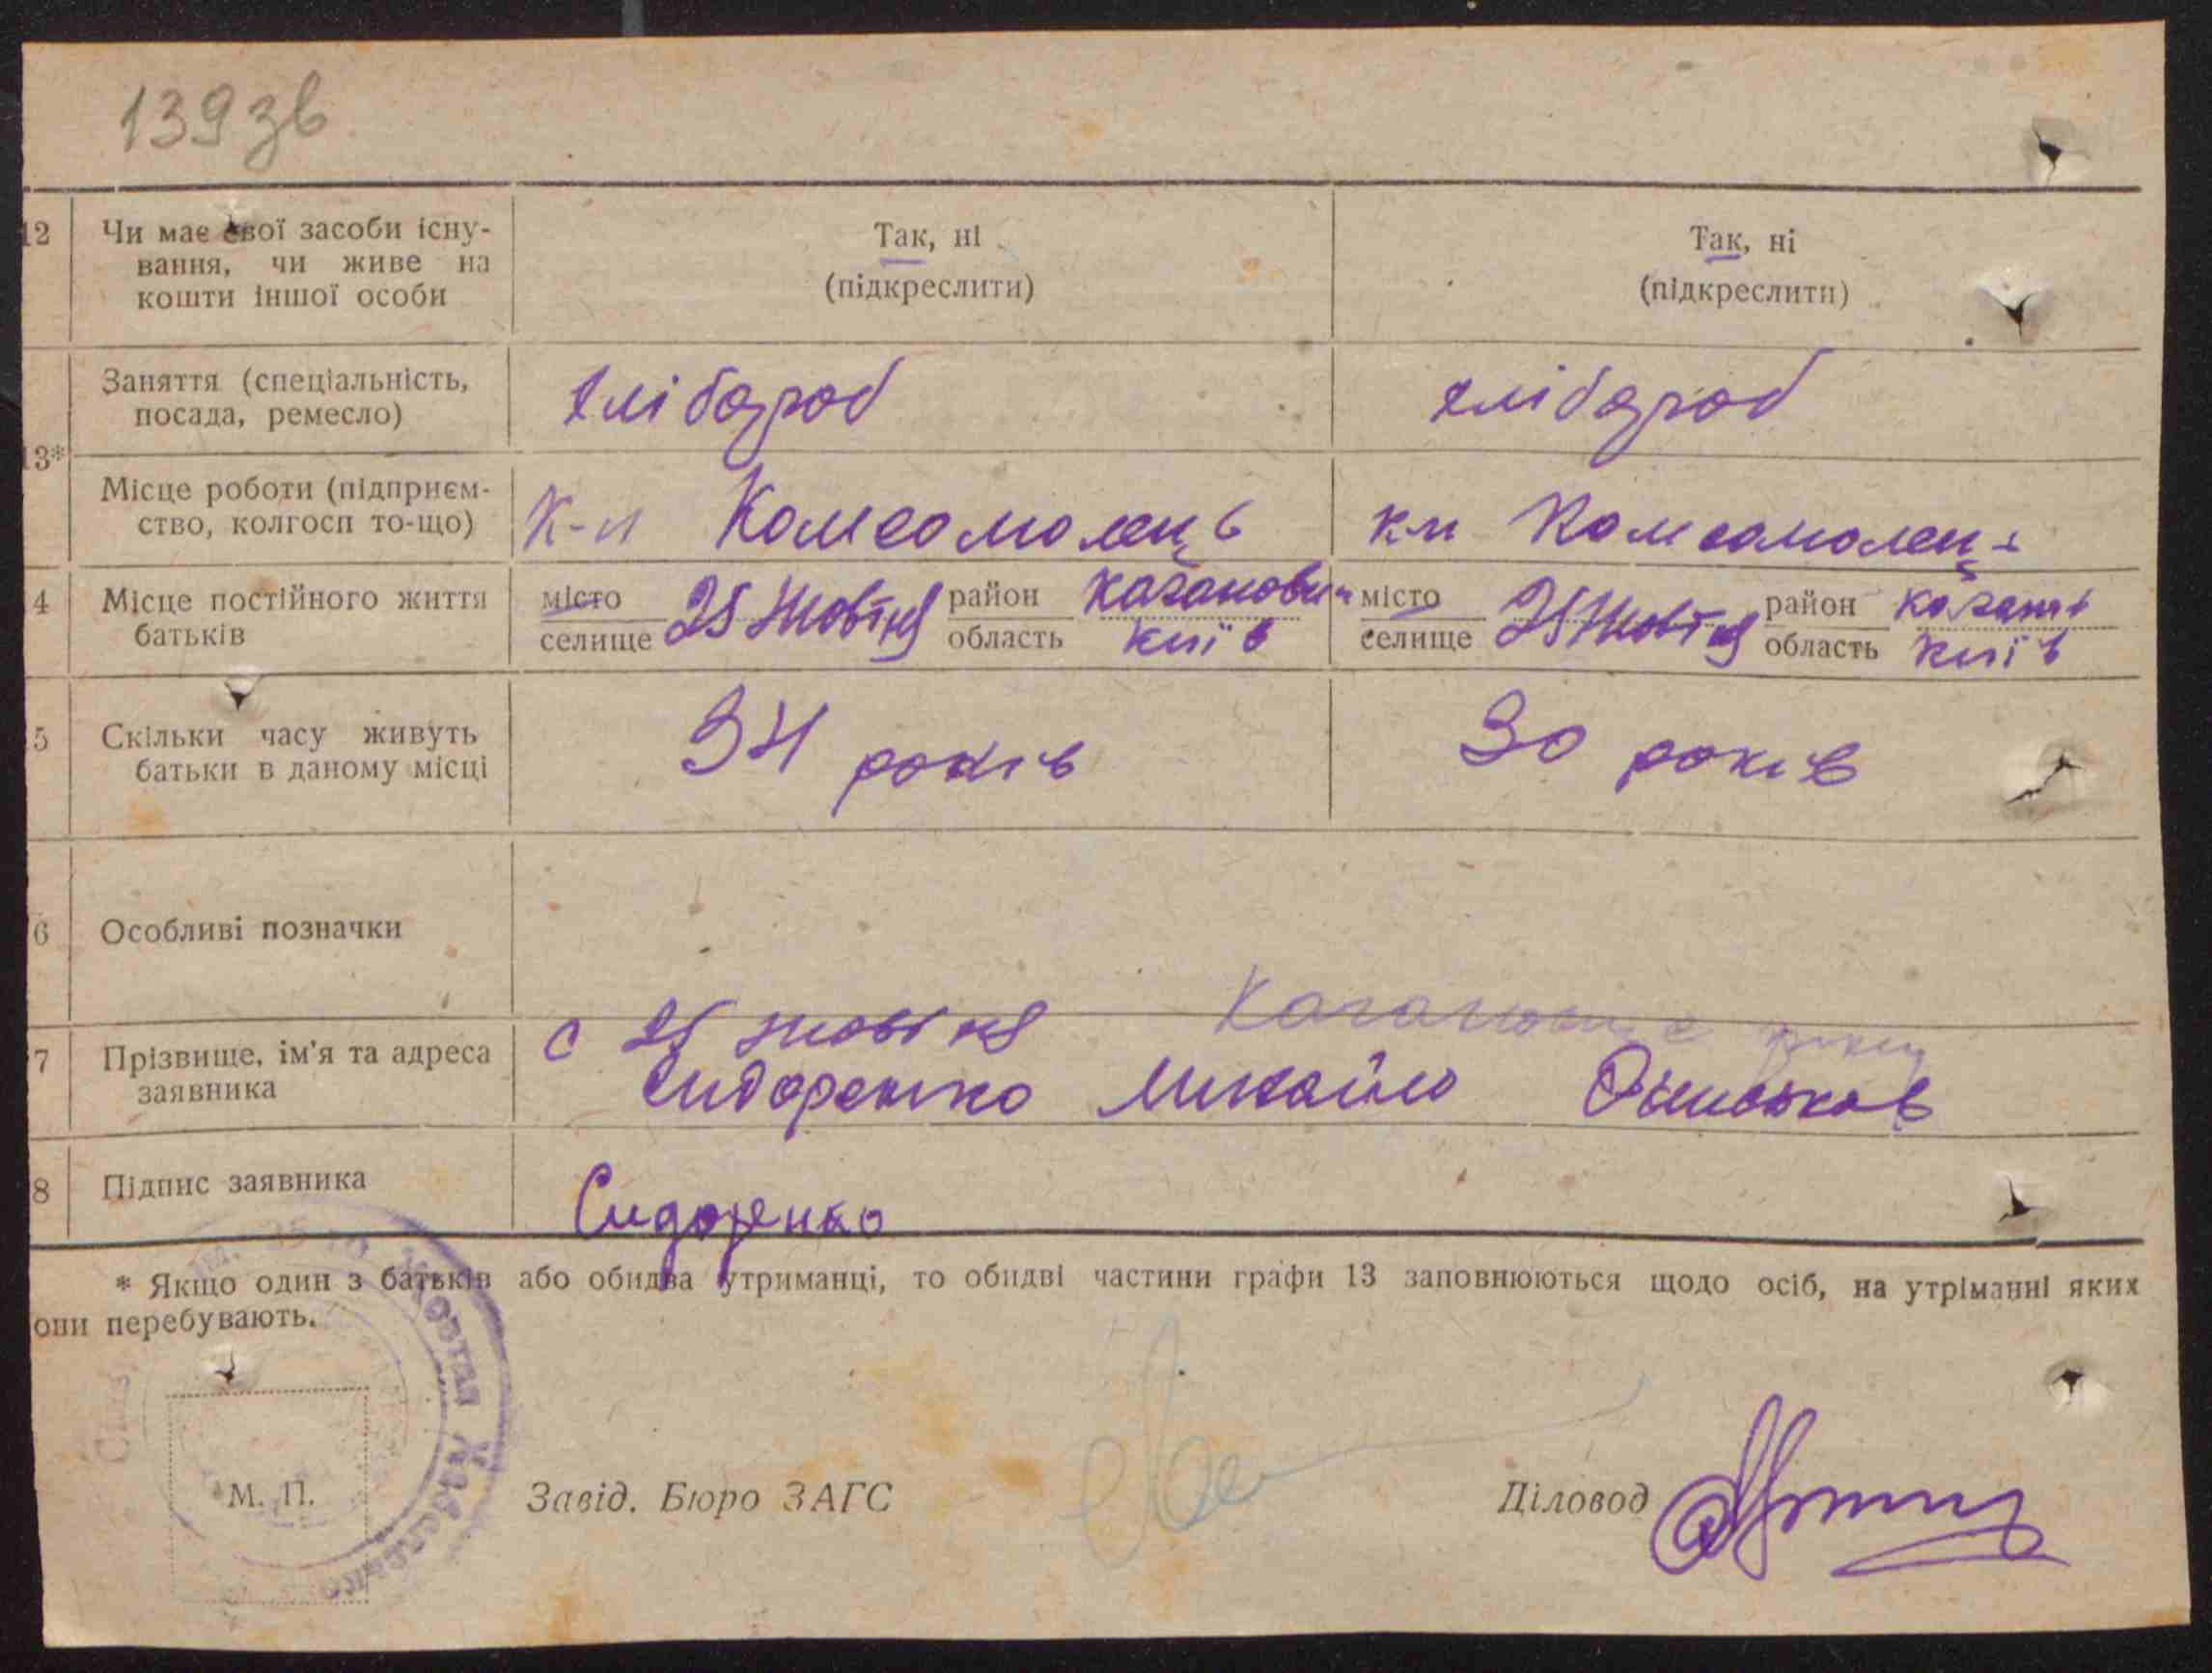 139зв
12 Чи має свої засоби існу-
вання, чи живе на
кошти іншої особи
Так, ні
(підкреслити)
Так, ні
(підкреслити)
13*
Заняття (спеціальність,
посада, ремесло)
хлібороб
хлібороб
Місце роботи (підприєм-
ство, колгосп то-що)
К-п Комсомолець
к-п Комсомолець
4 Місце постійного життя
батьків
місто
селище
25 Жовтня
район
область
Каганович
Київ
місто
селище
25 Жовтня
район
область
Каган
Київ
5 Скільки часу живуть
батьки в даному місці
34 років
30 років
6 Особливі позначки
7 Прізвище, ім'я та адреса
заявника
с 25 Жовтня
Сидоренко Михайло
8 Підпис заявника
Сидоренко
* Якщо один з батьків або обидва утриманці, то обидві частини графи 13 заповнюються щодо осіб, на утріманні яких
они перебувають.
М. П.
Завід. Бюро ЗАГС
Діловод